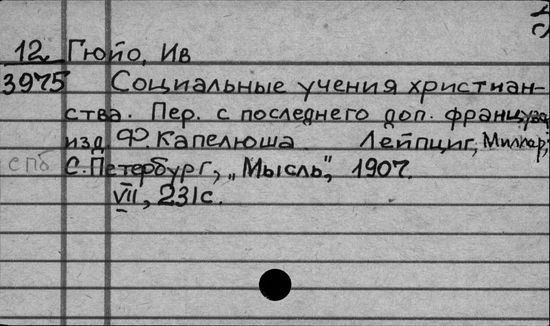 12 Гюйо, Ив
3975 Социальные учения христиан-
ства. Пер. с последнего доп. француз.
изд. Ф. Капелюша Лейпциг, Миллер;
спб С. Петербург, „Мысль", 1907.
VII, 231с.